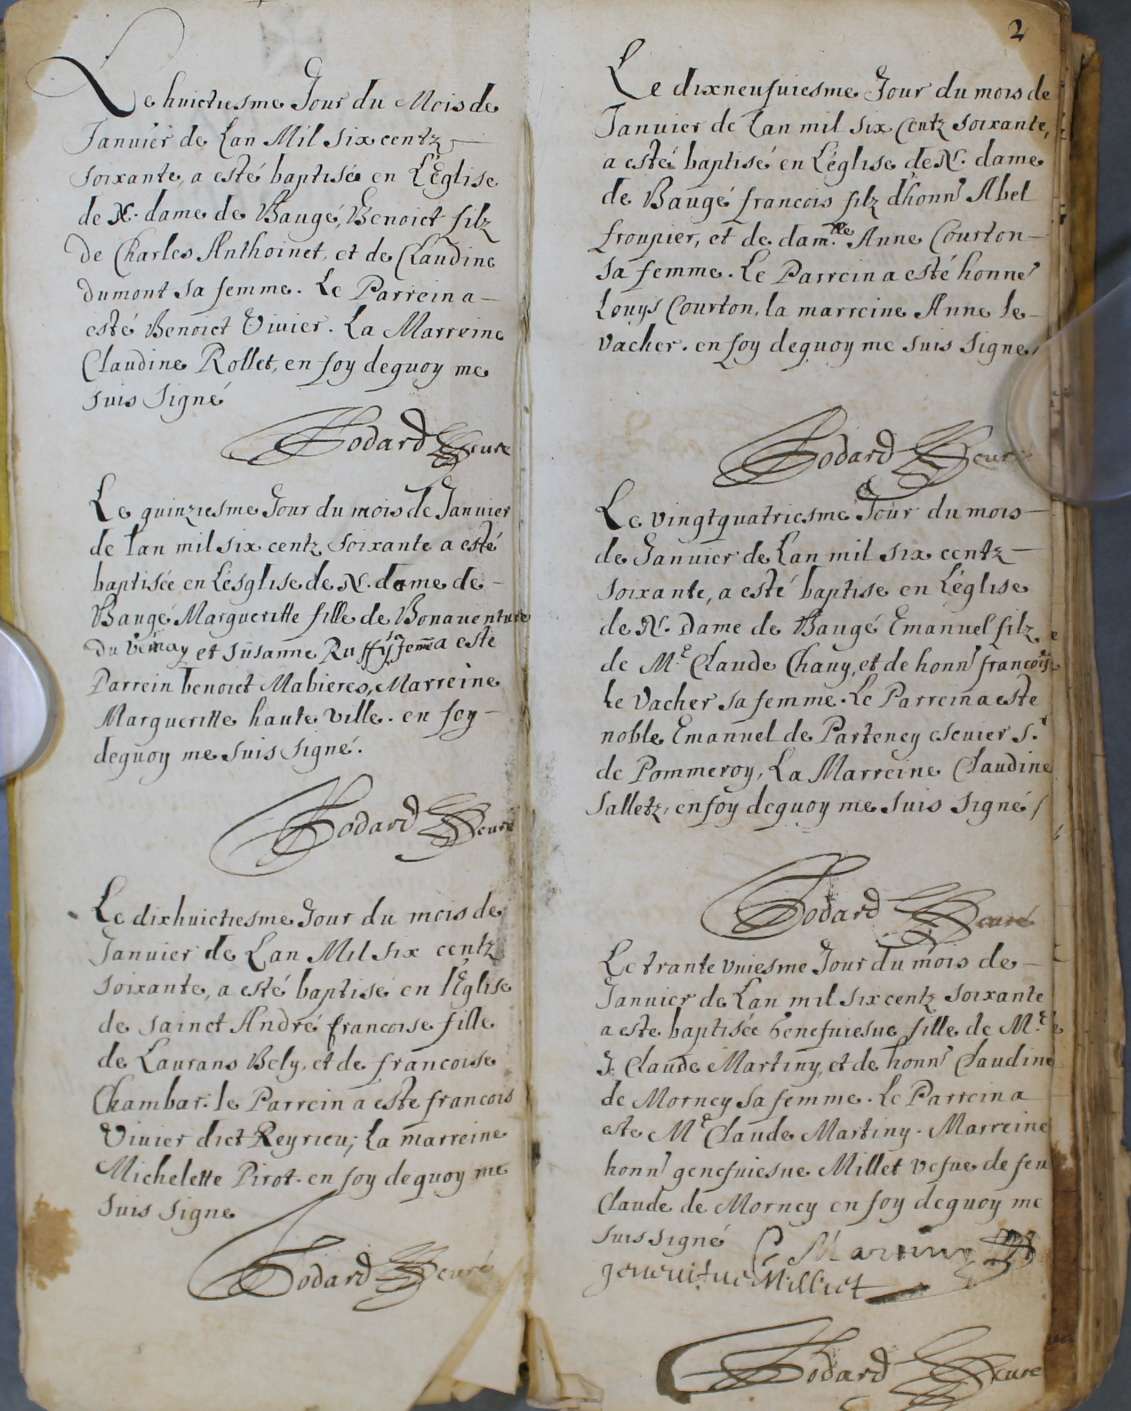 Le huictiesme Jour du Mois de
Januier de Lan Mil six centz
soixante, a esté baptisé en L'Eglise
de N. dame de Baugé, Benoict filz
de Charles Anthoinet, et de Claudine
dumont sa femme. Le Parrein a
esté Benoict Viuier. La Marreine
Claudine Rollet, en foy dequoy me
suis signé
Bodard Curé
Le quinziesme Jour du mois de Januier
de lan mil six centz soixante a esté
baptisée en Lesglise de N. dame de
Baugé Margueritte fille de Bonauenture
du et Susanne Ruffy sa femē a este
Parrein benoict Mabieres, Marreine
Margueritte haute ville. en foy
dequoy me suis signé.
Bodard Curé
Le dixhuictiesme Jour du mois de
Januier de Lan Mil six centz
soixante, a esté baptisé en l'Eglise
de sainct André francoise fille
de Laurans Bely, et de francoise
Chambar. le Parrein a este francois
Viuier dict Reyrieu; La marreine
Michelette Pirot. en foy dequoy me
suis signe
Bodard curé
2
Le dixneufuiesme Jour du mois de
Januier de Lan mil six centz soixante,
a esté baptisé en L'église de N. dame
de Baugé francois filz d'honn.^r Abel
froupier, et de dam.^lle Anne Courton
sa femme. Le Parrein a esté honne^r
Louys Courton, la marreine Anne le
vacher. en foy dequoy me suis signe,
Bodard Curé
Le vingtquatriesme Jour du mois
de Januier de Lan mil six centz
soixante, a esté baptise en L'église
de N. Dame de Baugé Emanuel filz
de M.^e Claude Chauy, et de honn^r francoise
le vacher sa femme. Le Parrein a este
noble Emanuel de Parteney escuier S.^r
de Pommeroy, La Marreine Claudine
Salletz, en foy dequoy me suis signé /
Bodard Curé
Le trante vniesme Jour du mois de
Januier de Lan mil six centz soixante
a este baptisée genefuiesue fille de M.^e
Claude Martiny, et de honn^r Claudine
de Morney sa femme. Le Parrein a
este M.^e Claude Martiny. Marreine
honn^r genefuiesue Millet vefue de feu
Claude de Morney en foy dequoy me
suis signé C Martiny
geneuifue Milliet
Bodard Curé